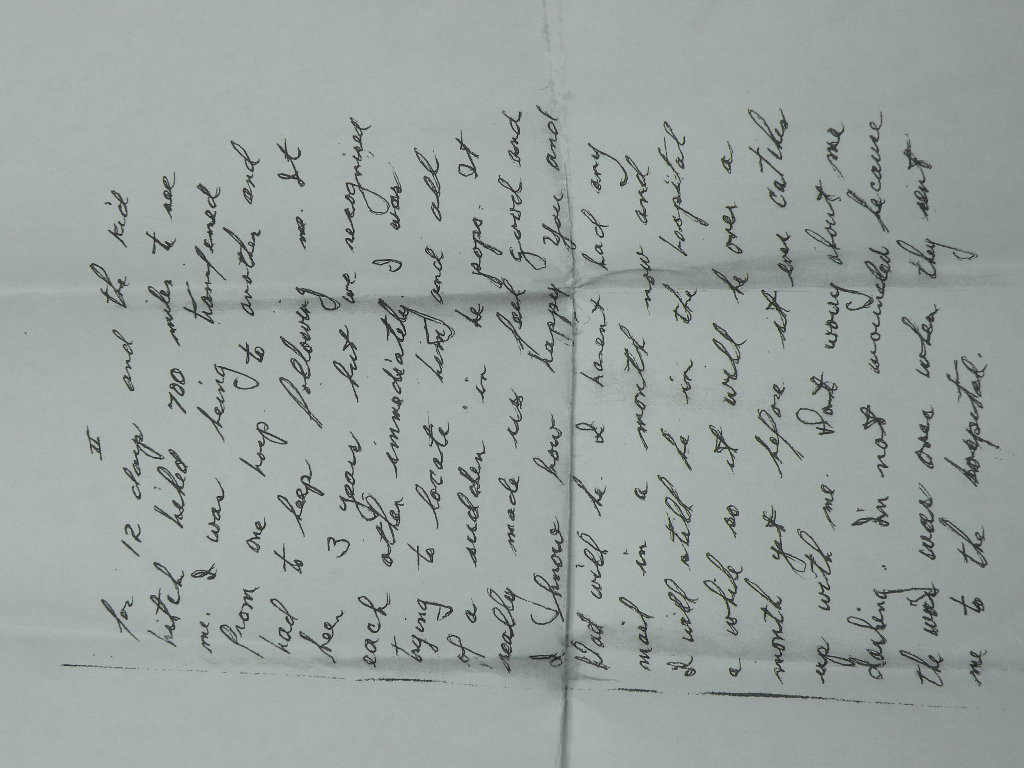 II
for 12 days and the kid
hitch hiked 700 miles to see
me. I was being transfered
from one hosp to another and
had to keep following me. It
been 3 years but we recognised
each other immediately. I was
trying to locate him and all
of a sudden in he pops. It
really made us feel good and
I know how happy you and
Dad will be. I havent had any
mail in a month now and
I will still be in the hospital
a while so it will be over a
month yet before it ever catches
up with me. Dont worry about me
darling. Im not wounded because
the war was over when they sent
me to the hospital.